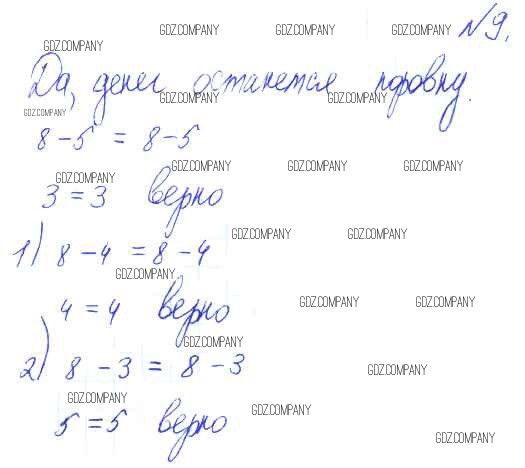 GDZ.COMPANY GDZ.COMPANY GDZ.COMPANY №9.
GDZ.COMPANY
Да, денег останется поровну.
GDZ.COMPANY GDZ.COMPANY
GDZ.COMPANY
8 – 5 = 8 – 5
GDZ.COMPANY GDZ.COMPANY GDZ.COMPANY
GDZ.COMPANY
3 = 3 верно
GDZ.COMPANY GDZ.COMPANY
1) 8 – 4 = 8 – 4
GDZ.COMPANY
4 = 4 верно
GDZ.COMPANY GDZ.COMPANY
GDZ.COMPANY
2) 8 – 3 = 8 – 3
GDZ.COMPANY
GDZ.COMPANY
5 = 5 верно
GDZ.COMPANY
GDZ.COMPANY